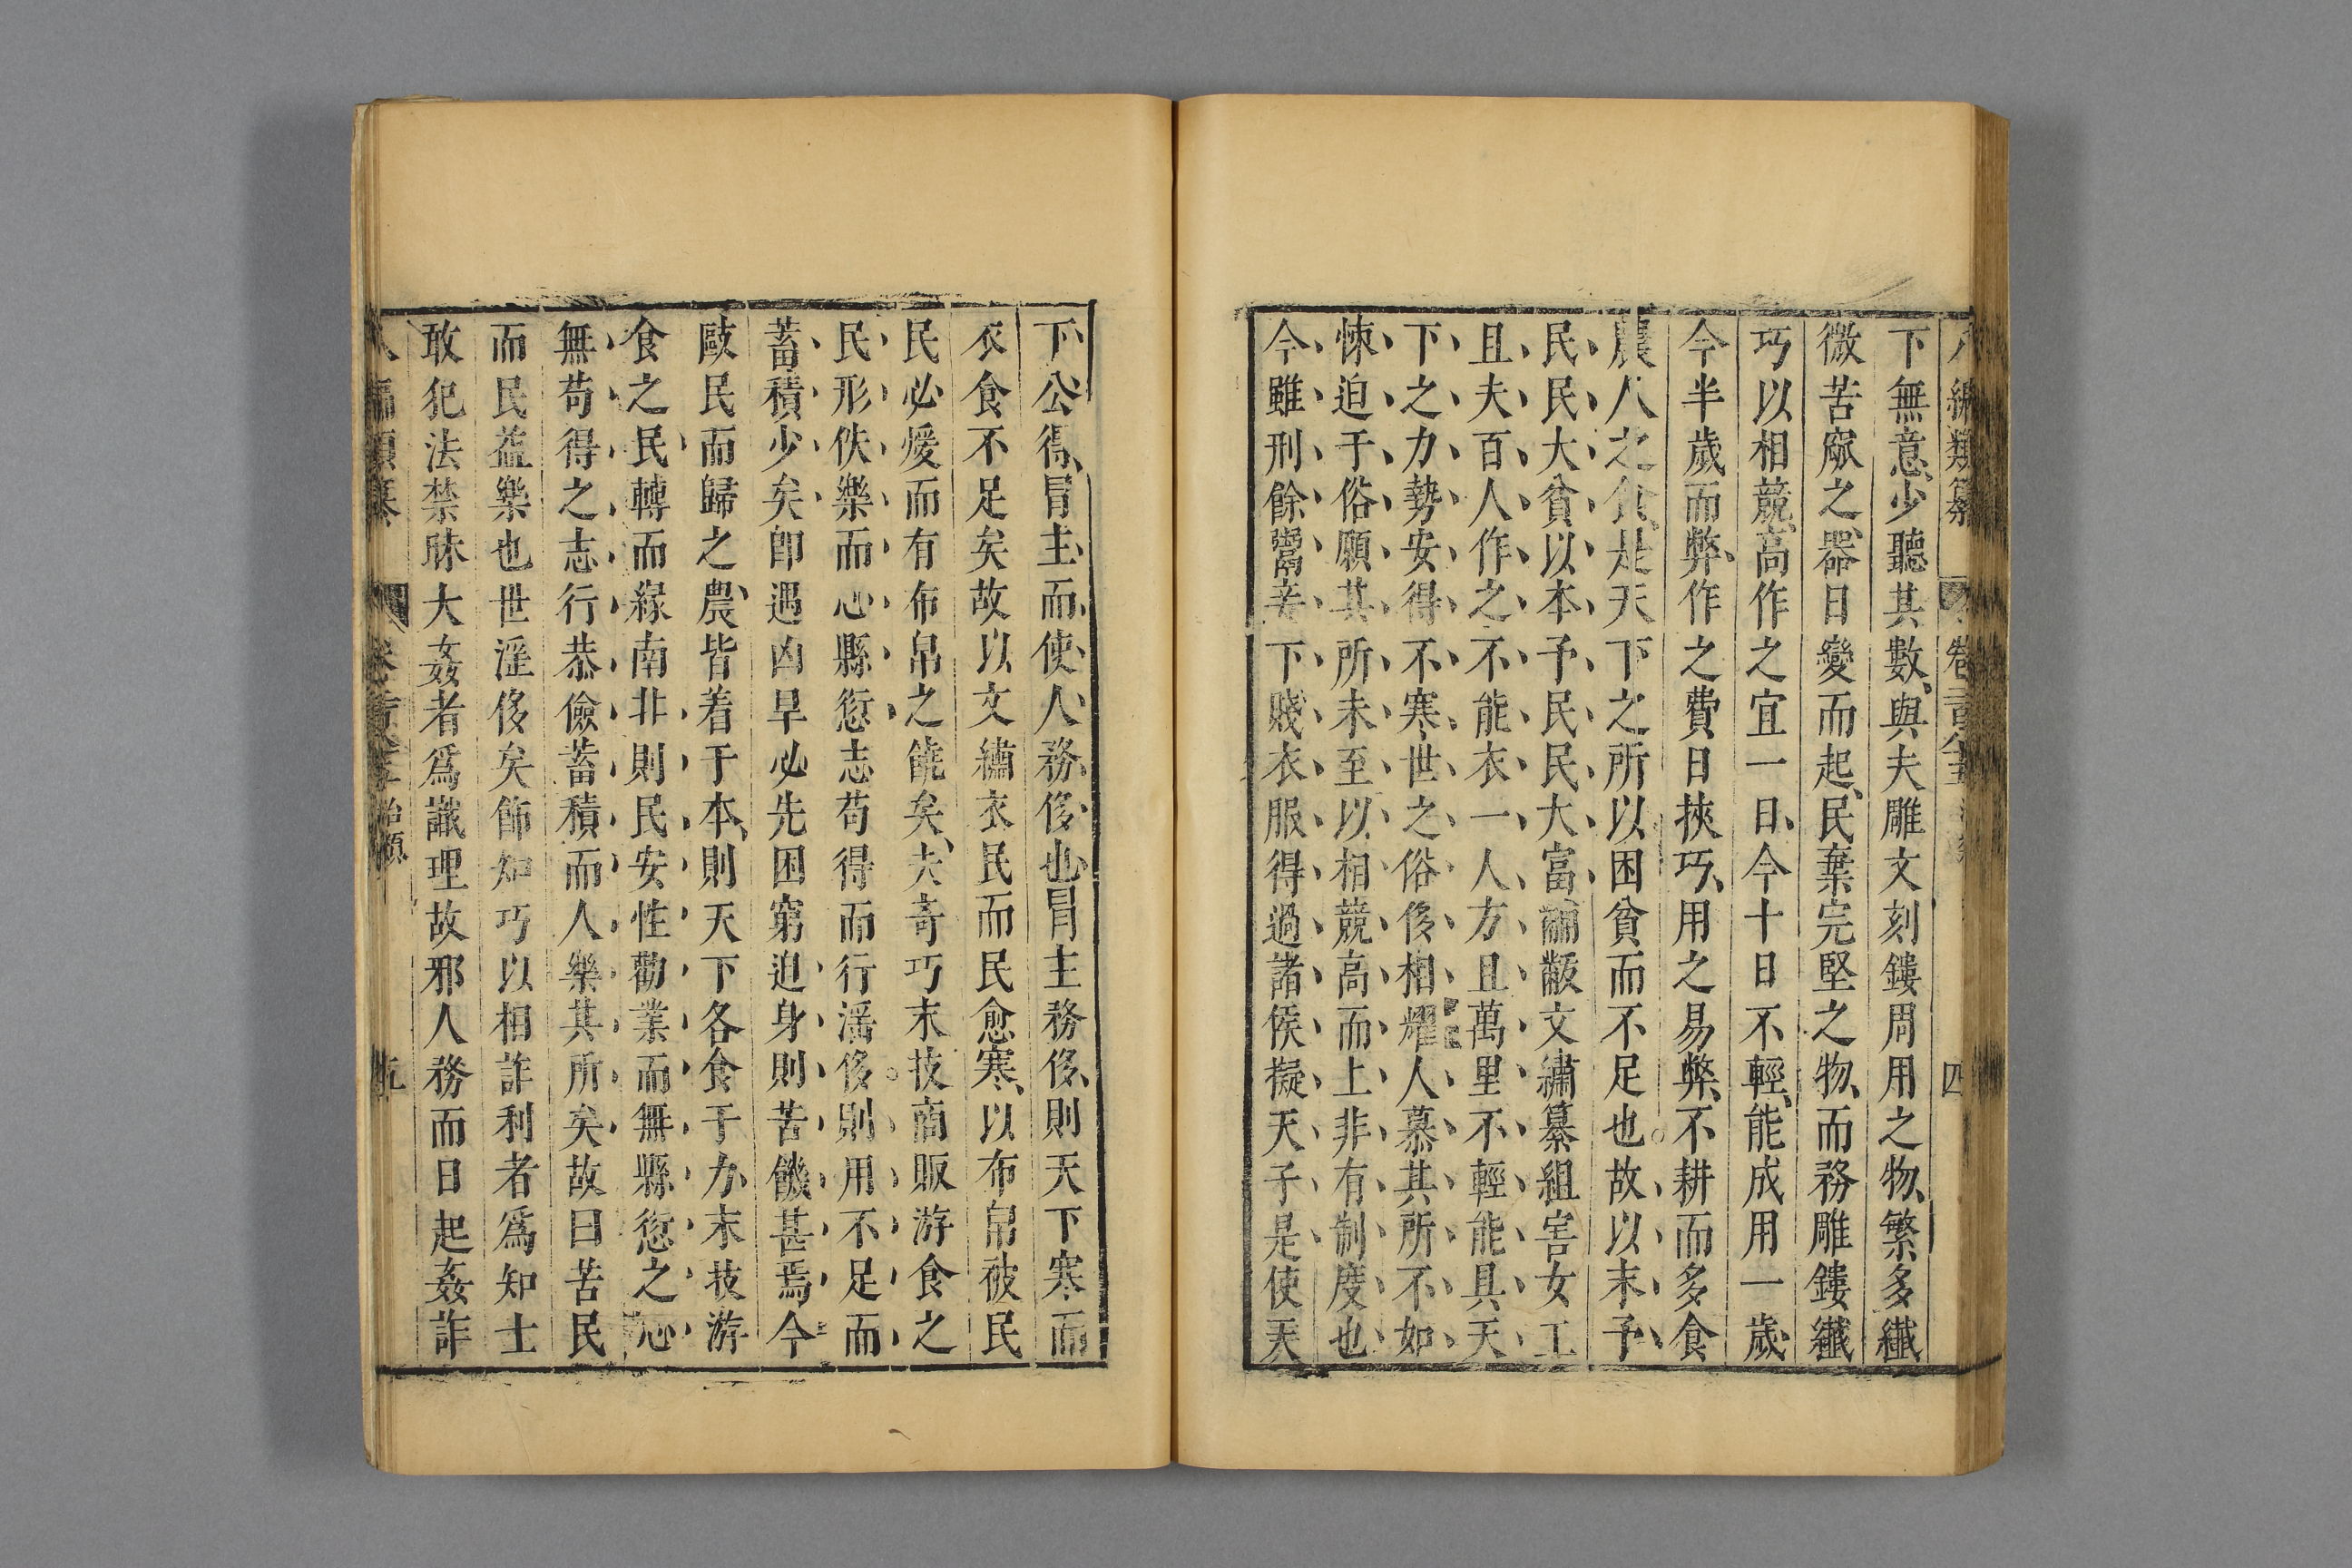 八編類纂 卷二百八十五 四
下無意少聽其數與夫雕文刻鏤周用之物繁多纖
微苦窳之器日變而起民棄完堅之物而務雕鏤纖
巧以相競高作之宜一日今十日不輕能成用一歲
今半歲而弊作之費日挾巧用之易弊不耕而多食
農人之食是天下之所以困貧而不足也故以末予
民民大貧以本予民民大富黼黻文繡纂組害女工
且夫百人作之不能衣一人方且萬里不輕能具天
下之力勢安得不寒世之俗侈相耀人慕其所不如
悚迫于俗願其所未至以相競高而上非有制度也
今雖刑餘鬻妾下賤衣服得過諸侯擬天子是使天
下公得冒主而使人務侈也冒主務侈則天下寒而
衣食不足矣故以文繡衣民而民愈寒以布帛被民
民必煖而有布帛之饒矣夫奇巧末技商販游食之
民形佚樂而心縣愆志苟得而行淫侈則用不足而
蓄積少矣卽遇凶旱必先困窮迫身則苦饑甚焉今
敺民而歸之農皆着于本則天下各食于力末技游
食之民轉而緣南非則民安性勸業而無縣愆之心
無苟得之志行恭儉蓄積而人樂其所矣故曰苦民
而民益樂也世淫侈矣飾知巧以相詐利者爲知士
敢犯法禁昧大姦者爲識理故邪人務而日起姦詐
八編類纂 治類 五